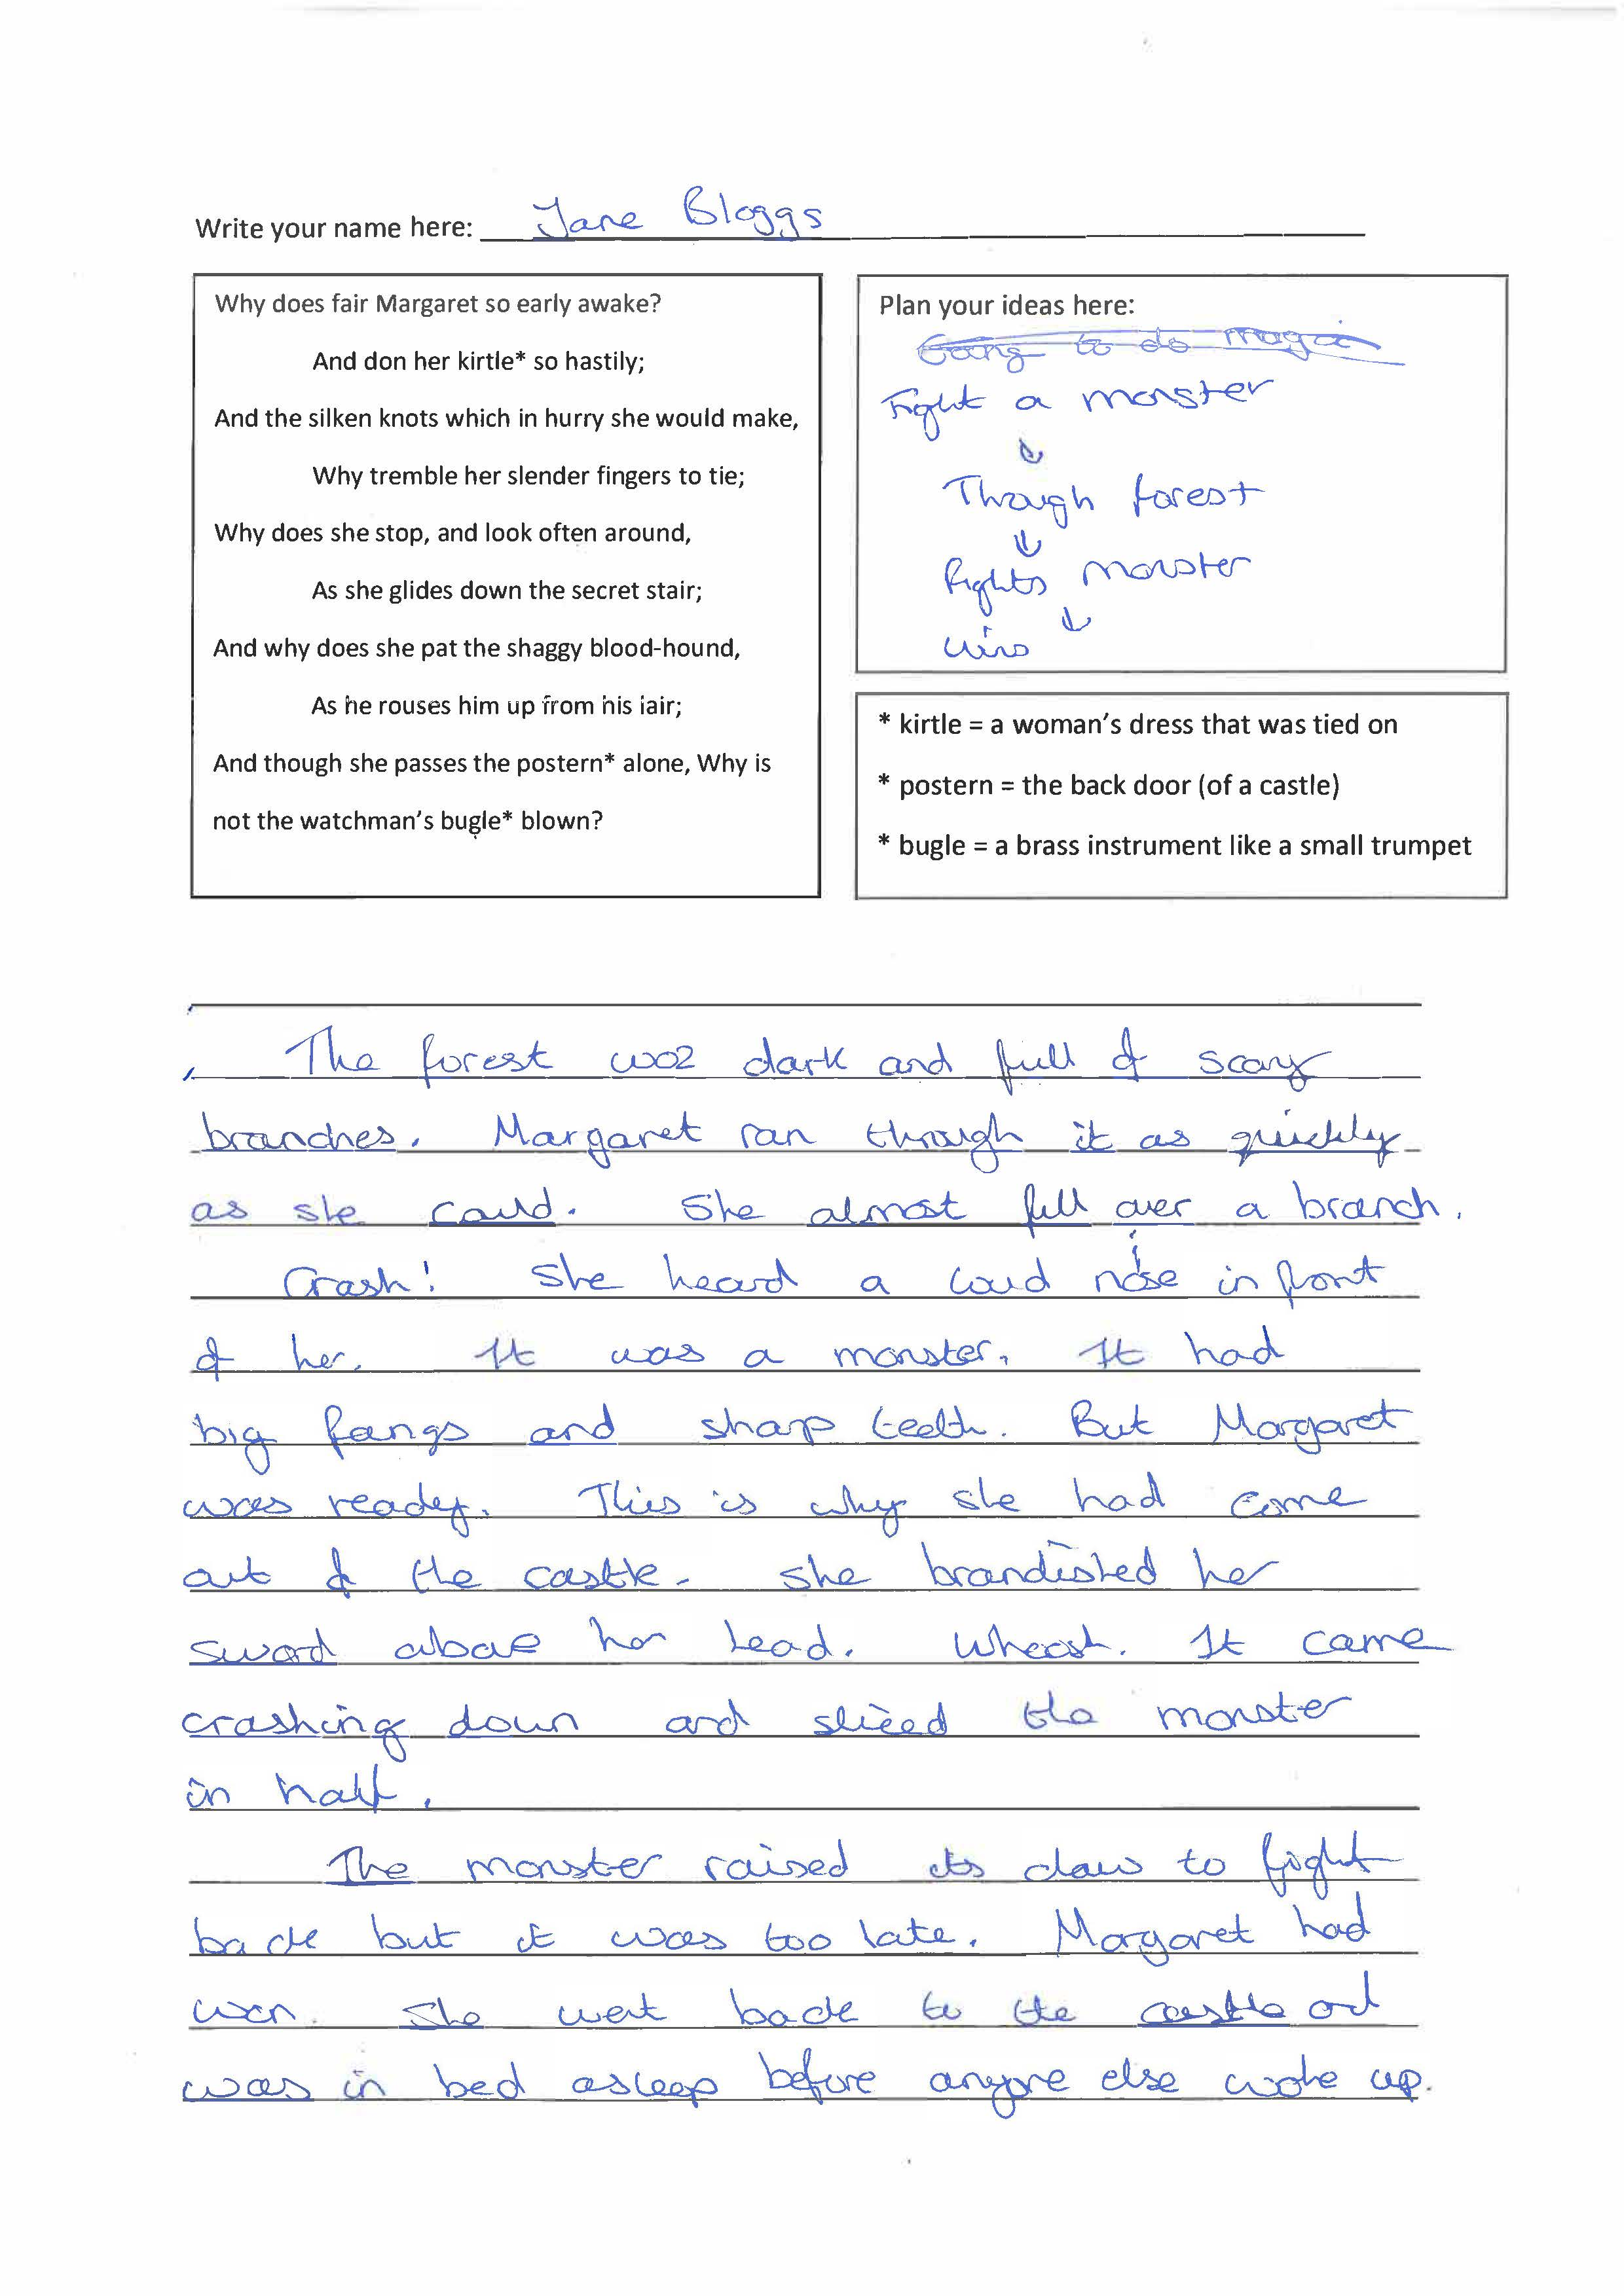 Write your name here: Jane Bloggs
Why does fair Margaret so early awake?
And don her kirtle* so hastily;
And the silken knots which in hurry she would make,
Why tremble her slender fingers to tie;
Why does she stop, and look often around,
As she glides down the secret stair;
And why does she pat the shaggy blood-hound,
As he rouses him up from his lair;
And though she passes the postern* alone, Why is
not the watchman's bugle* blown?
Plan your ideas here:
Going to do magic
Fight a monster
Through forest
Fights monster
Wins
* kirtle = a woman's dress that was tied on
* postern = the back door (of a castle)
* bugle = a brass instrument like a small trumpet
The forest was dark and full of scary
branches. Margaret ran through it as quickly
as she could. She almost fell over a branch.
Crash! She heard a loud noise in front
of her. It was a monster. It had
big fangs and sharp teeth. But Margaret
was ready. This is why she had come
out of the castle. She brandished her
sword above her head. Whoosh. It came
crashing down and sliced the monster
in half.
The monster raised its claws to fight
back but it was too late. Margaret had
won. She went back to the castle and
was in bed asleep before anyone else woke up.